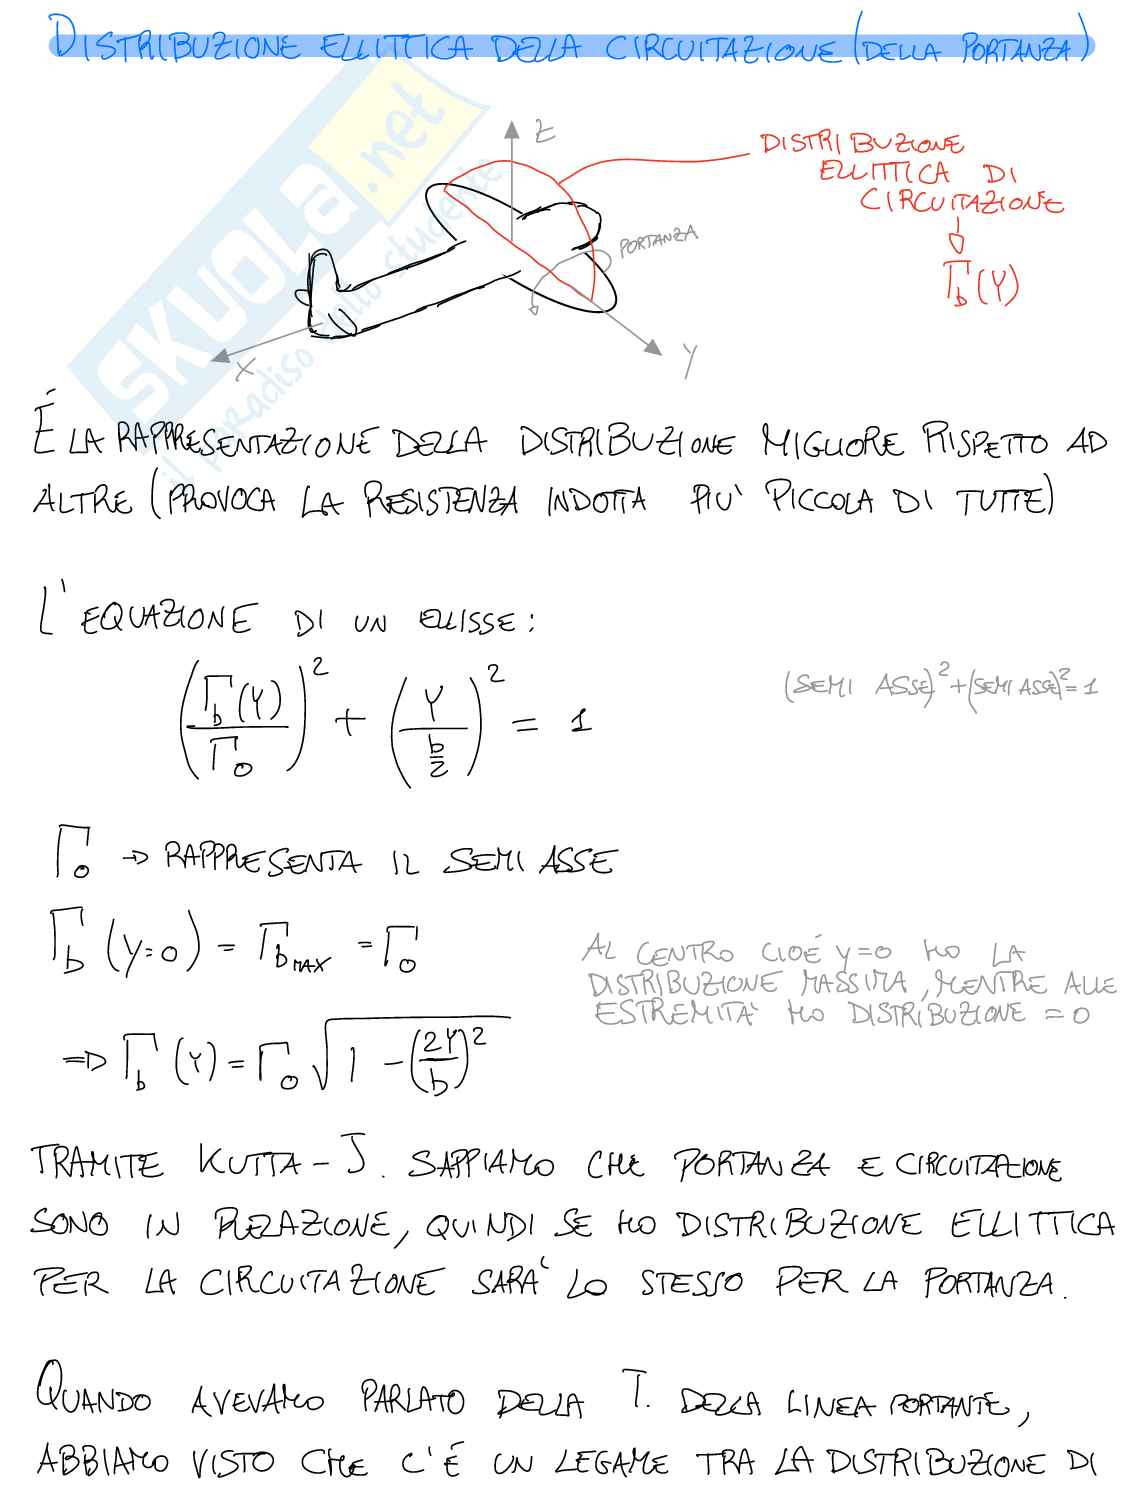 DISTRIBUZIONE ELLITTICA DELLA CIRCUITAZIONE (DELLA PORTANZA)
Z
DISTRIBUZIONE
ELLITTICA DI
CIRCUITAZIONE
PORTANZA
Γb(Y)
X
Y
SKUOLA.net
il paradiso dello studente
É LA RAPPRESENTAZIONE DELLA DISTRIBUZIONE MIGLIORE RISPETTO AD
ALTRE (PROVOCA LA RESISTENZA INDOTTA PIU' PICCOLA DI TUTTE)
L'EQUAZIONE DI UN ELLISSE:
(Γb(Y)/Γ0)² + (Y/(b/2))² = 1
(SEMI ASSE)² + (SEMI ASSE)² = 1
Γ0 → RAPPRESENTA IL SEMI ASSE
Γb (Y=0) = Γb MAX = Γ0
AL CENTRO CIOÉ Y=0 HO LA
DISTRIBUZIONE MASSIMA, MENTRE ALLE
ESTREMITA' HO DISTRIBUZIONE = 0
⇒ Γb (Y) = Γ0 √(1 - (2Y/b)²)
TRAMITE KUTTA-J. SAPPIAMO CHE PORTANZA E CIRCUITAZIONE
SONO IN RELAZIONE, QUINDI SE HO DISTRIBUZIONE ELLITTICA
PER LA CIRCUITAZIONE SARA' LO STESSO PER LA PORTANZA.
QUANDO AVEVAMO PARLATO DELLA T. DELLA LINEA PORTANTE,
ABBIAMO VISTO CHE C'É UN LEGAME TRA LA DISTRIBUZIONE DI